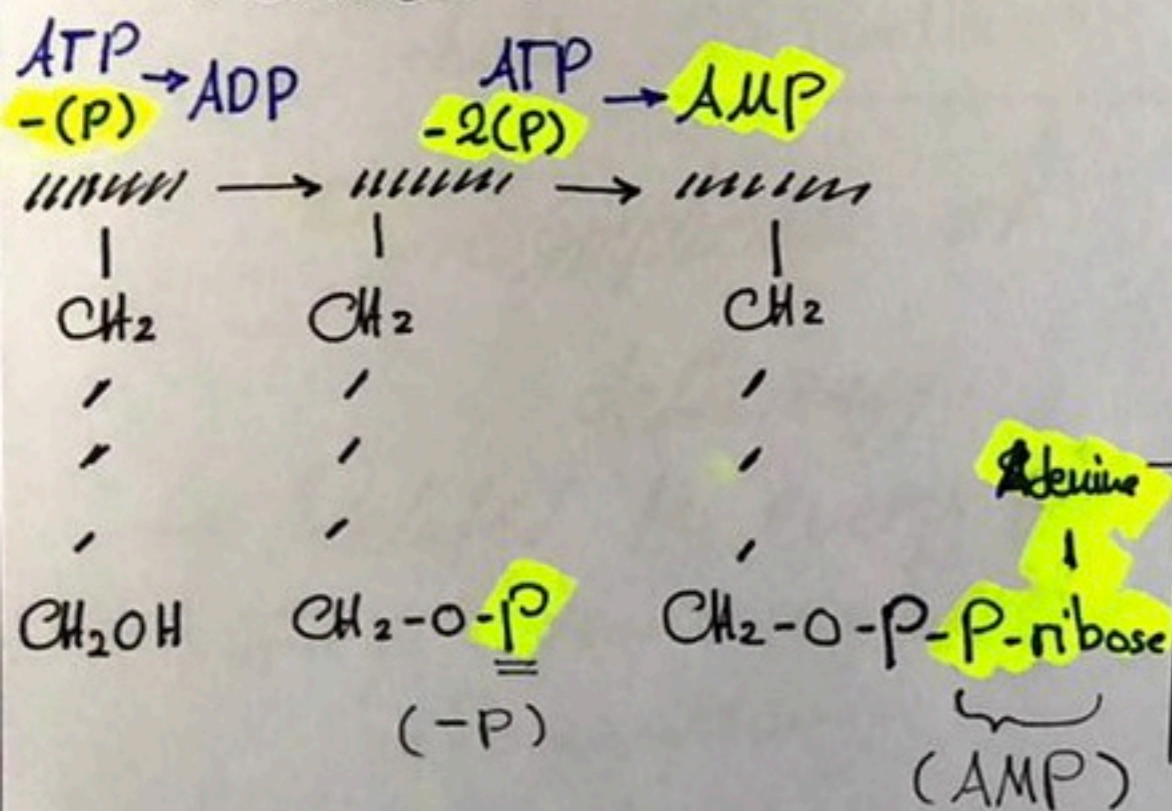 ATP → ADP ATP → AMP
-(P) -2(P)
→ →
CH2 CH2 CH2
Adenine
CH2OH CH2-O-P CH2-O-P-P-ribose
(-P) (AMP)